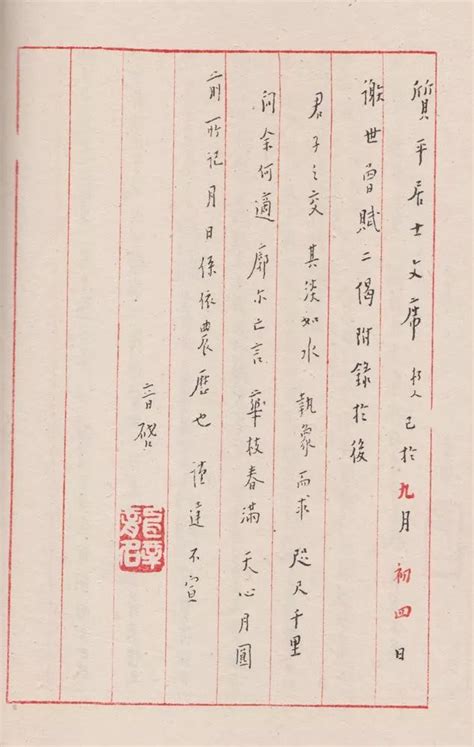 質平居士文席朽人已於九月初四日
謝世曾賦二偈附錄於後
君子之交 其淡如水 執象而求 咫尺千里
問余何適 廓尔亡言 華枝春滿 天心月圓
前所記月日係依農歷也 謹達不宣
音啓